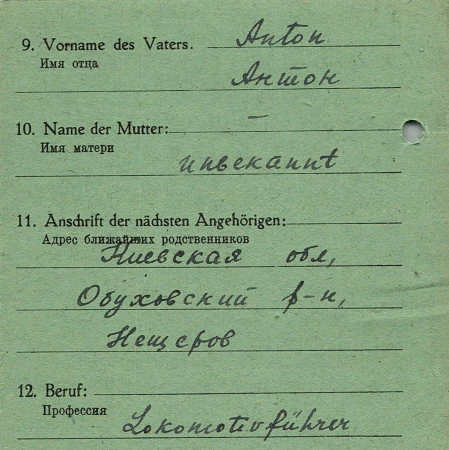 9. Vorname des Vaters. Anton
Имя отца
Антон
10. Name der Mutter: —
Имя матери
unbekannt
11. Anschrift der nächsten Angehörigen:
Адрес ближайших родственников
Киевская обл,
Обуховский р-н,
Нещеров
12. Beruf:
Профессия
Lokomotivführer